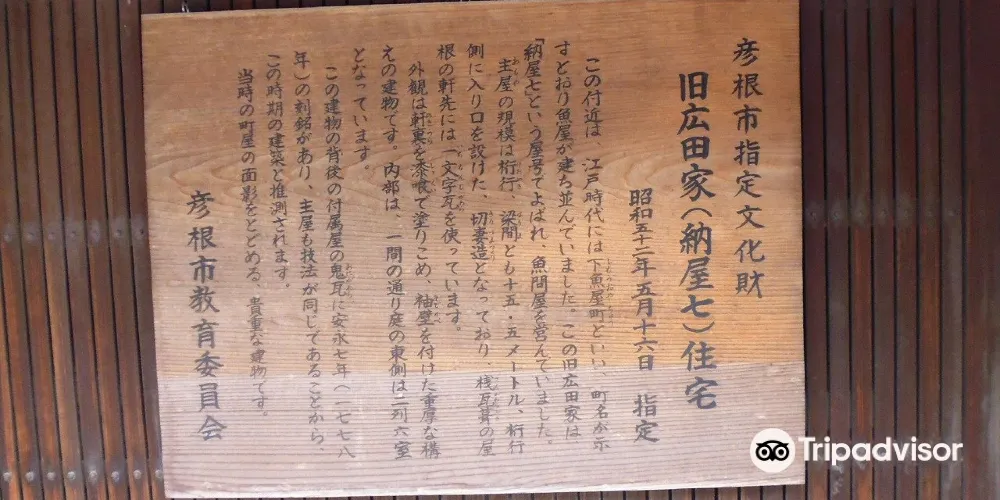 彦根市指定文化財
旧広田家(納屋七)住宅
昭和五十二年五月十六日 指定
この付近は、江戸時代には下魚屋町といい、町名が示
すとおり魚屋が建ち並んでいました。この旧広田家は
「納屋七」という屋号でよばれ、魚問屋を営んでいました。
主屋の規模は桁行、梁間とも十五・五メートル、桁行
側に入り口を設けた、切妻造となっており、桟瓦葺の屋
根の軒先には一文字瓦を使っています。
外観は軒裏を漆喰で塗りこめ、袖壁を付けた重厚な構
えの建物です。内部は、一間の通り庭の東側は二列六室
となっています。
この建物の背後の付属屋の鬼瓦に安永七年(一七七八
年)の刻銘があり、主屋も技法が同じであることから、
この時期の建築と推測されます。
当時の町屋の面影をとどめる、貴重な建物です。
彦根市教育委員会
Tripadvisor